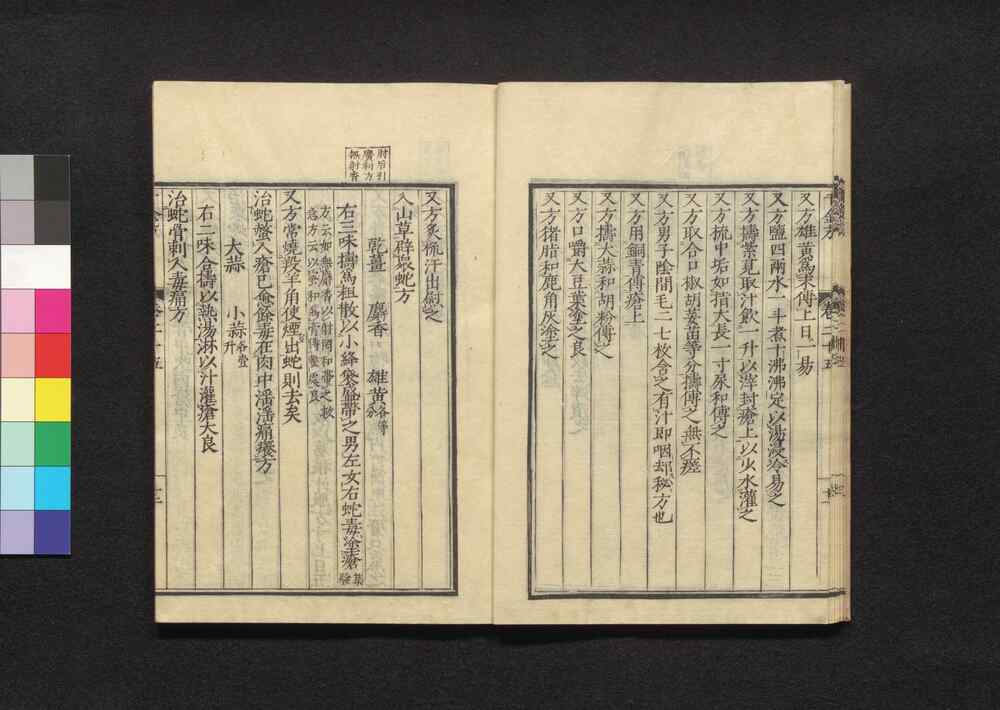 又方雄黄爲末傅上日一易
又方鹽四兩水一斗煮十沸沸定以湯浸冷易之
又方擣紫莧取汁飲一升以滓封瘡上以少水灌之
又方梳中垢如指大長一寸尿和傅之
又方取合口椒葫荽苗等分擣傅之無不瘥
又方男子陰間毛二七枚含之有汁即咽却秘方也
又方用銅青傅瘡上
又方擣大蒜和胡粉傅之
又方口嚼大豆葉塗之良
又方猪脂和鹿角灰塗之
卷二十五
又方炙梳汗出熨之
入山草辟衆蛇方
乾薑 麝香 雄黄各等分
右三味擣爲粗散以小絳囊盛帶之男左女右蛇毒塗瘡集驗
方云如無麝香以射罔和帶之救
急方云以蜜和爲膏傅螫處良
又方常燒羖羊角使煙出蛇則去矣
治蛇螫人瘡已愈餘毒在肉中淫淫痛癢方
大蒜 小蒜各壹升
右二味合擣以熱湯淋以汁灌瘡大良
治蛇骨刺人毒痛方